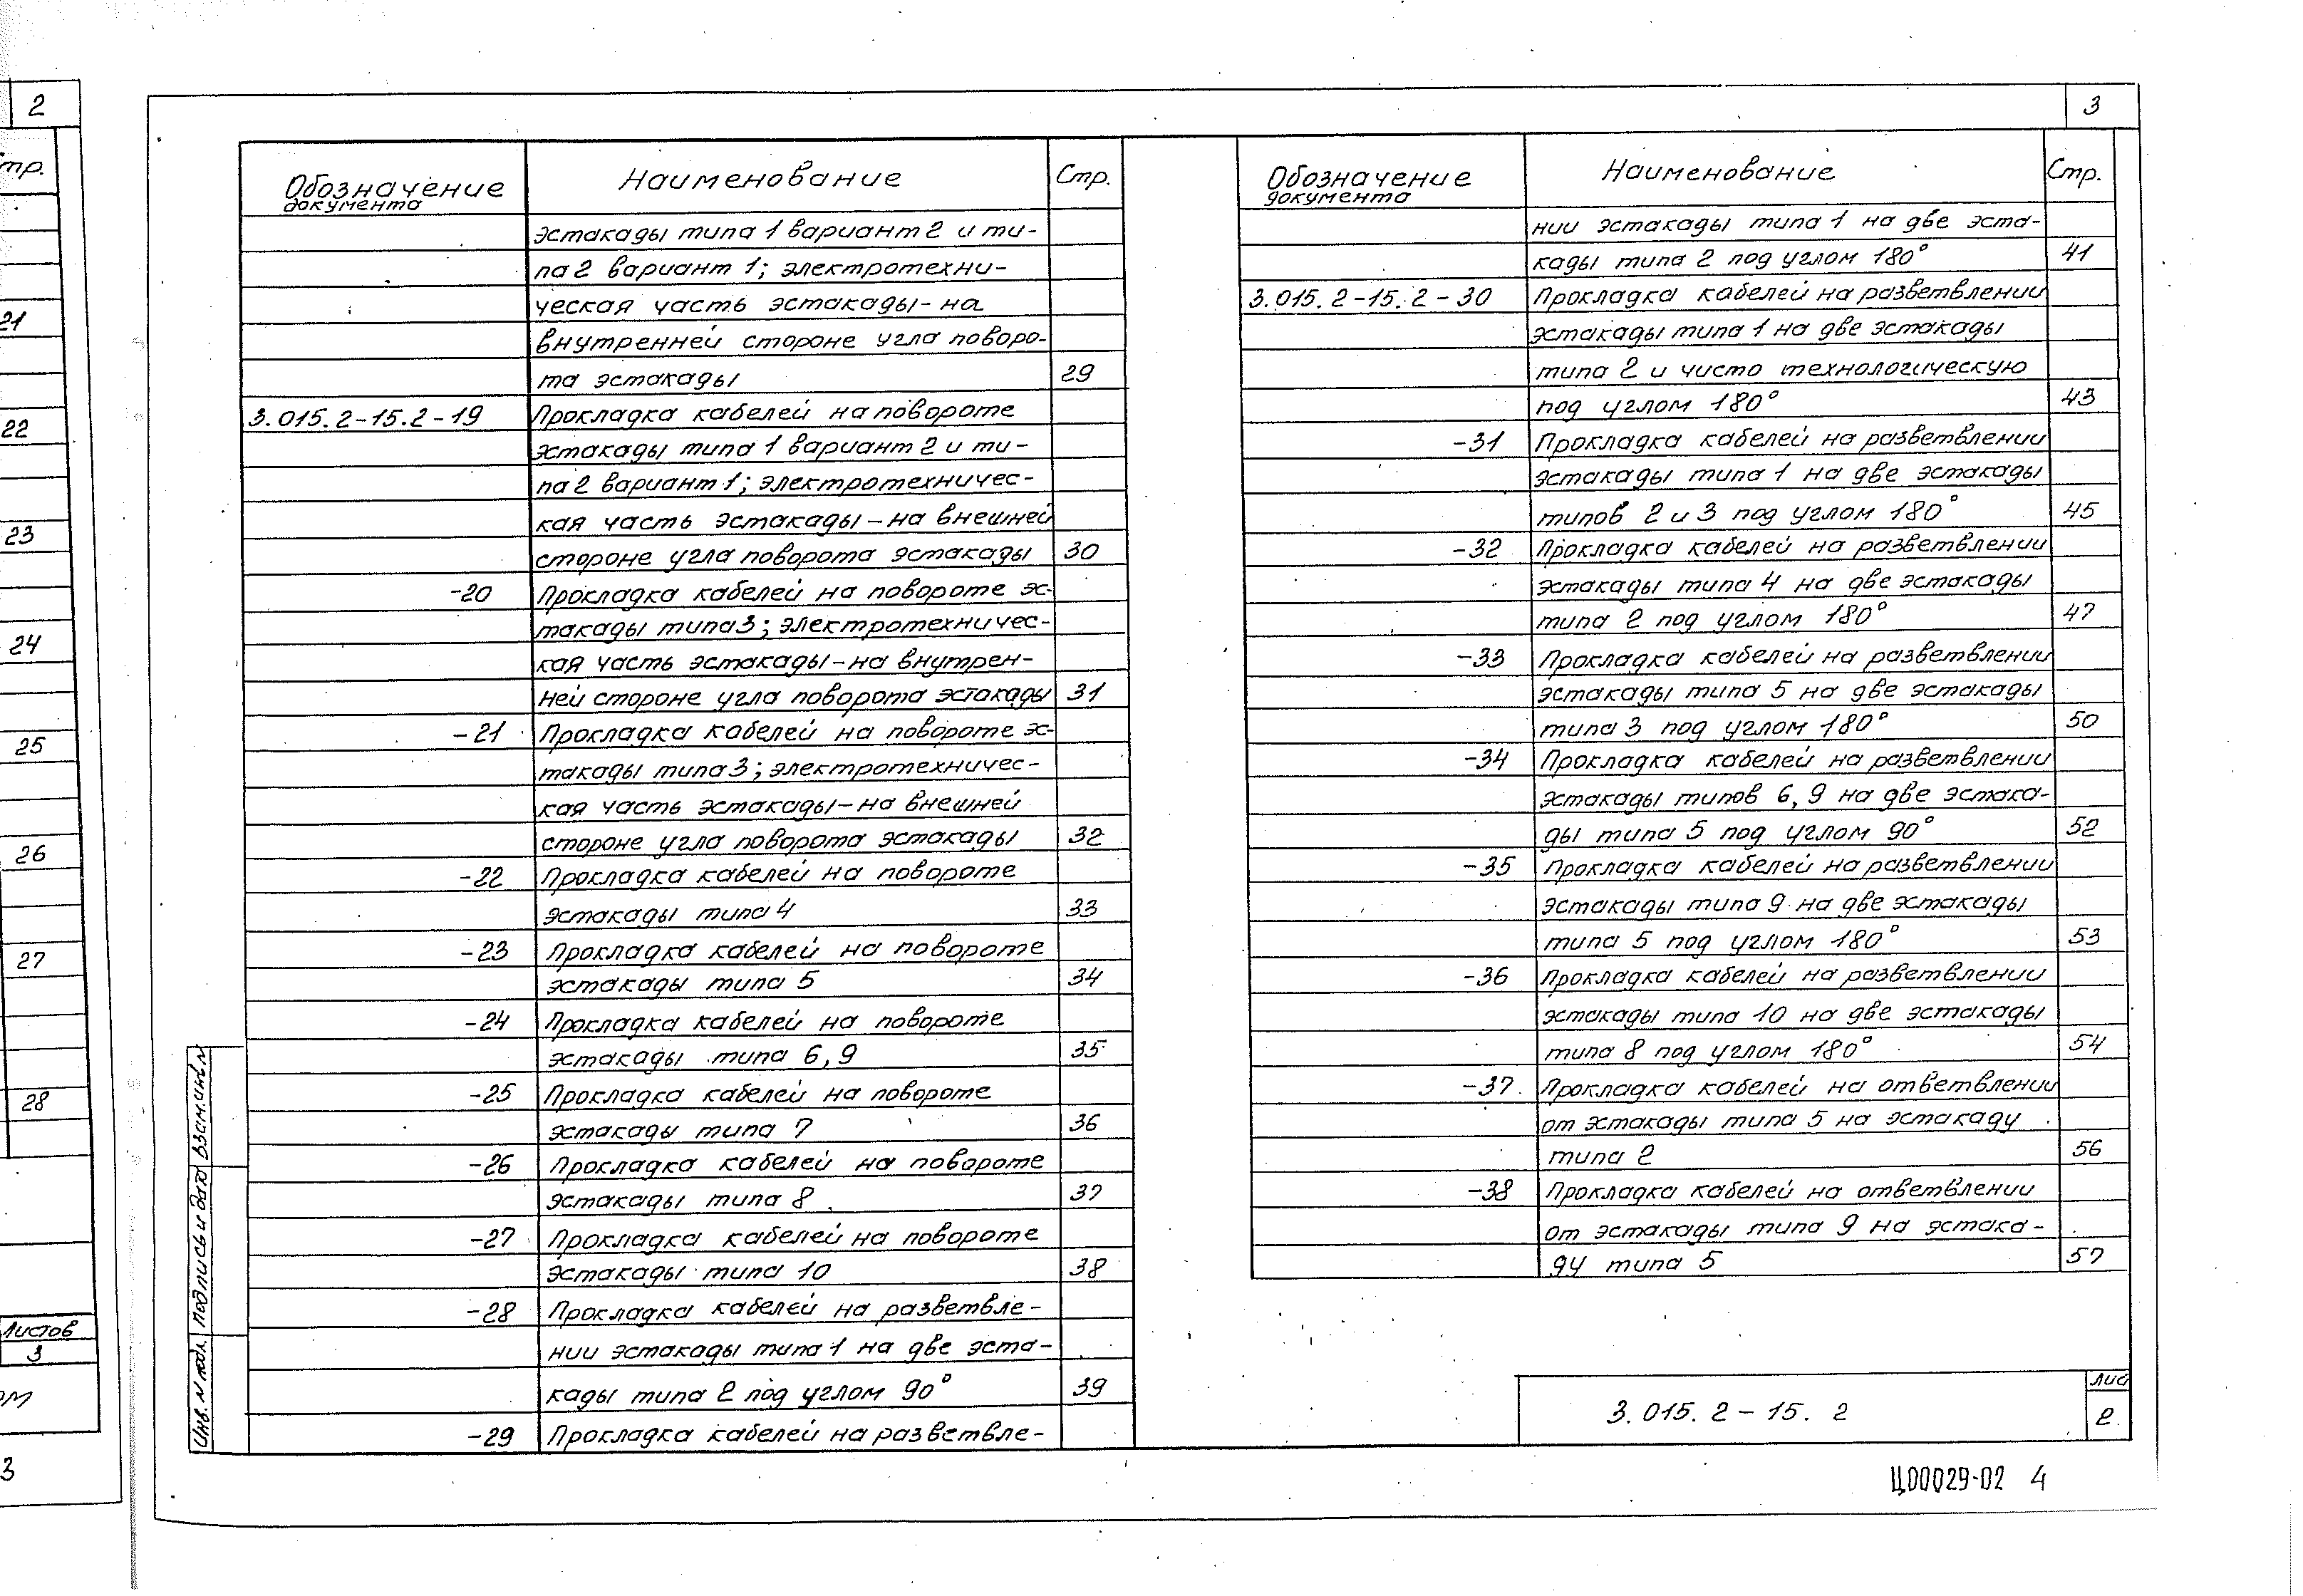 2
тр.
21
22
23
24
25
26
27
28
Листов
3
3
3
Обозначение документа Наименование Стр.
эстакады типа 1 вариант 2 и ти-
па 2 вариант 1; электротехни-
ческая часть эстакады - на
внутренней стороне угла поворо-
та эстакады 29
3.015.2-15.2-19 Прокладка кабелей на повороте
эстакады типа 1 вариант 2 и ти-
па 2 вариант 1; электротехничес-
кая часть эстакады - на внешней
стороне угла поворота эстакады 30
-20 Прокладка кабелей на повороте эс-
такады типа 3; электротехничес-
кая часть эстакады - на внутрен-
ней стороне угла поворота эстакады 31
-21 Прокладка кабелей на повороте эс-
такады типа 3; электротехничес-
кая часть эстакады - на внешней
стороне угла поворота эстакады 32
-22 Прокладка кабелей на повороте
эстакады типа 4 33
-23 Прокладка кабелей на повороте
эстакады типа 5 34
-24 Прокладка кабелей на повороте
эстакады типа 6, 9 35
-25 Прокладка кабелей на повороте
эстакады типа 7 36
-26 Прокладка кабелей на повороте
эстакады типа 8 37
-27 Прокладка кабелей на повороте
эстакады типа 10 38
-28 Прокладка кабелей на разветвле-
нии эстакады типа 1 на две эста-
кады типа 2 под углом 90° 39
-29 Прокладка кабелей на разветвле-
Обозначение документа Наименование Стр.
нии эстакады типа 1 на две эста-
кады типа 2 под углом 180° 41
3.015.2-15.2-30 Прокладка кабелей на разветвлении
эстакады типа 1 на две эстакады
типа 2 и чисто технологическую
под углом 180° 43
-31 Прокладка кабелей на разветвлении
эстакады типа 1 на две эстакады
типов 2 и 3 под углом 180° 45
-32 Прокладка кабелей на разветвлении
эстакады типа 4 на две эстакады
типа 2 под углом 180° 47
-33 Прокладка кабелей на разветвлении
эстакады типа 5 на две эстакады
типа 3 под углом 180° 50
-34 Прокладка кабелей на разветвлении
эстакады типов 6, 9 на две эстака-
ды типа 5 под углом 90° 52
-35 Прокладка кабелей на разветвлении
эстакады типа 9 на две эстакады
типа 5 под углом 180° 53
-36 Прокладка кабелей на разветвлении
эстакады типа 10 на две эстакады
типа 8 под углом 180° 54
-37 Прокладка кабелей на ответвлении
от эстакады типа 5 на эстакаду
типа 2 56
-38 Прокладка кабелей на ответвлении
от эстакады типа 9 на эстака-
ду типа 5 57
Взам.инв.N
Подпись и дата
Инв. N подл.
3.015.2-15.2
Лис
2
Ц00029-02 4